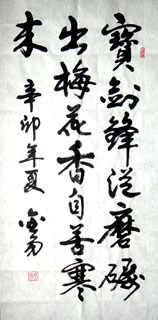 寶劍鋒從磨礪
出梅花香自苦寒
來
辛卯年夏